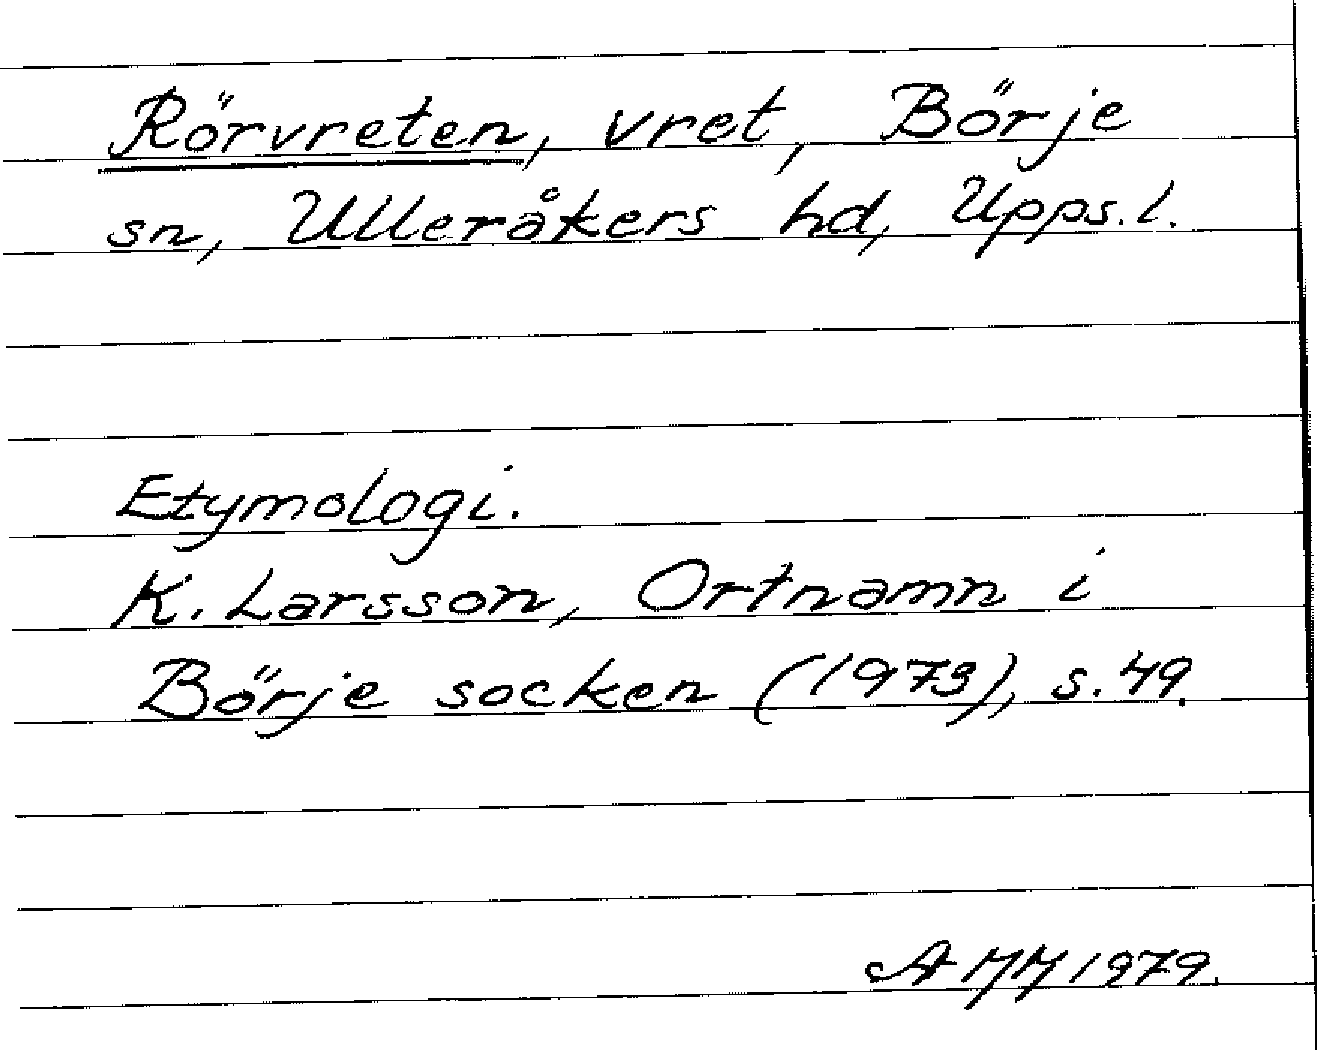 Rörvreten, vret, Börje
sn, Ulleråkers hd, Upps.l.
Etymologi.
K. Larsson, Ortnamn i
Börje socken (1973), s. 49.
1979.